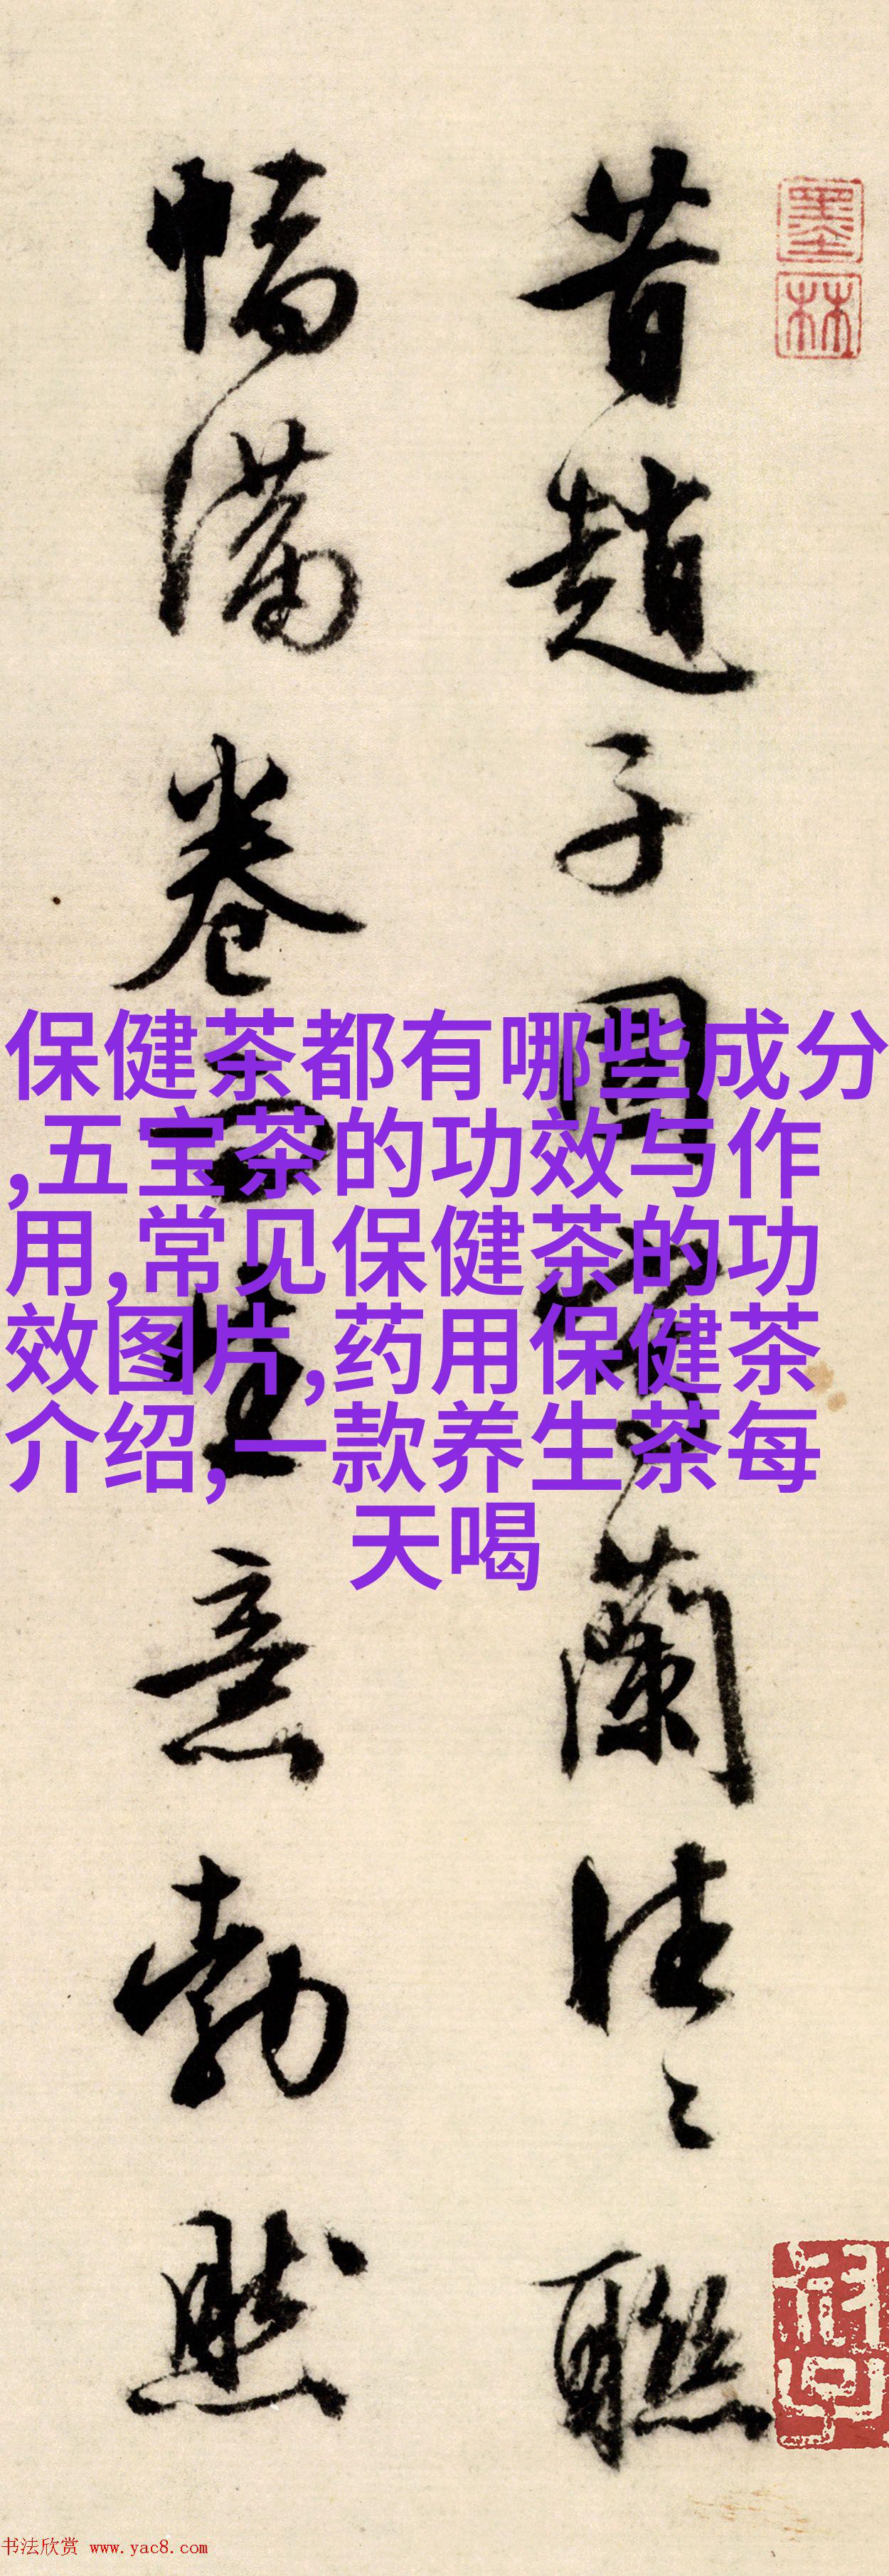 昔趙子固寫蘭往〻聯
幅滿卷而生意勃然
墨林
保健茶都有哪些成分
,五宝茶的功效与作
用,常见保健茶的功
效图片,药用保健茶
介绍,一款养生茶每
天喝
书法欣赏 www.yac8.com